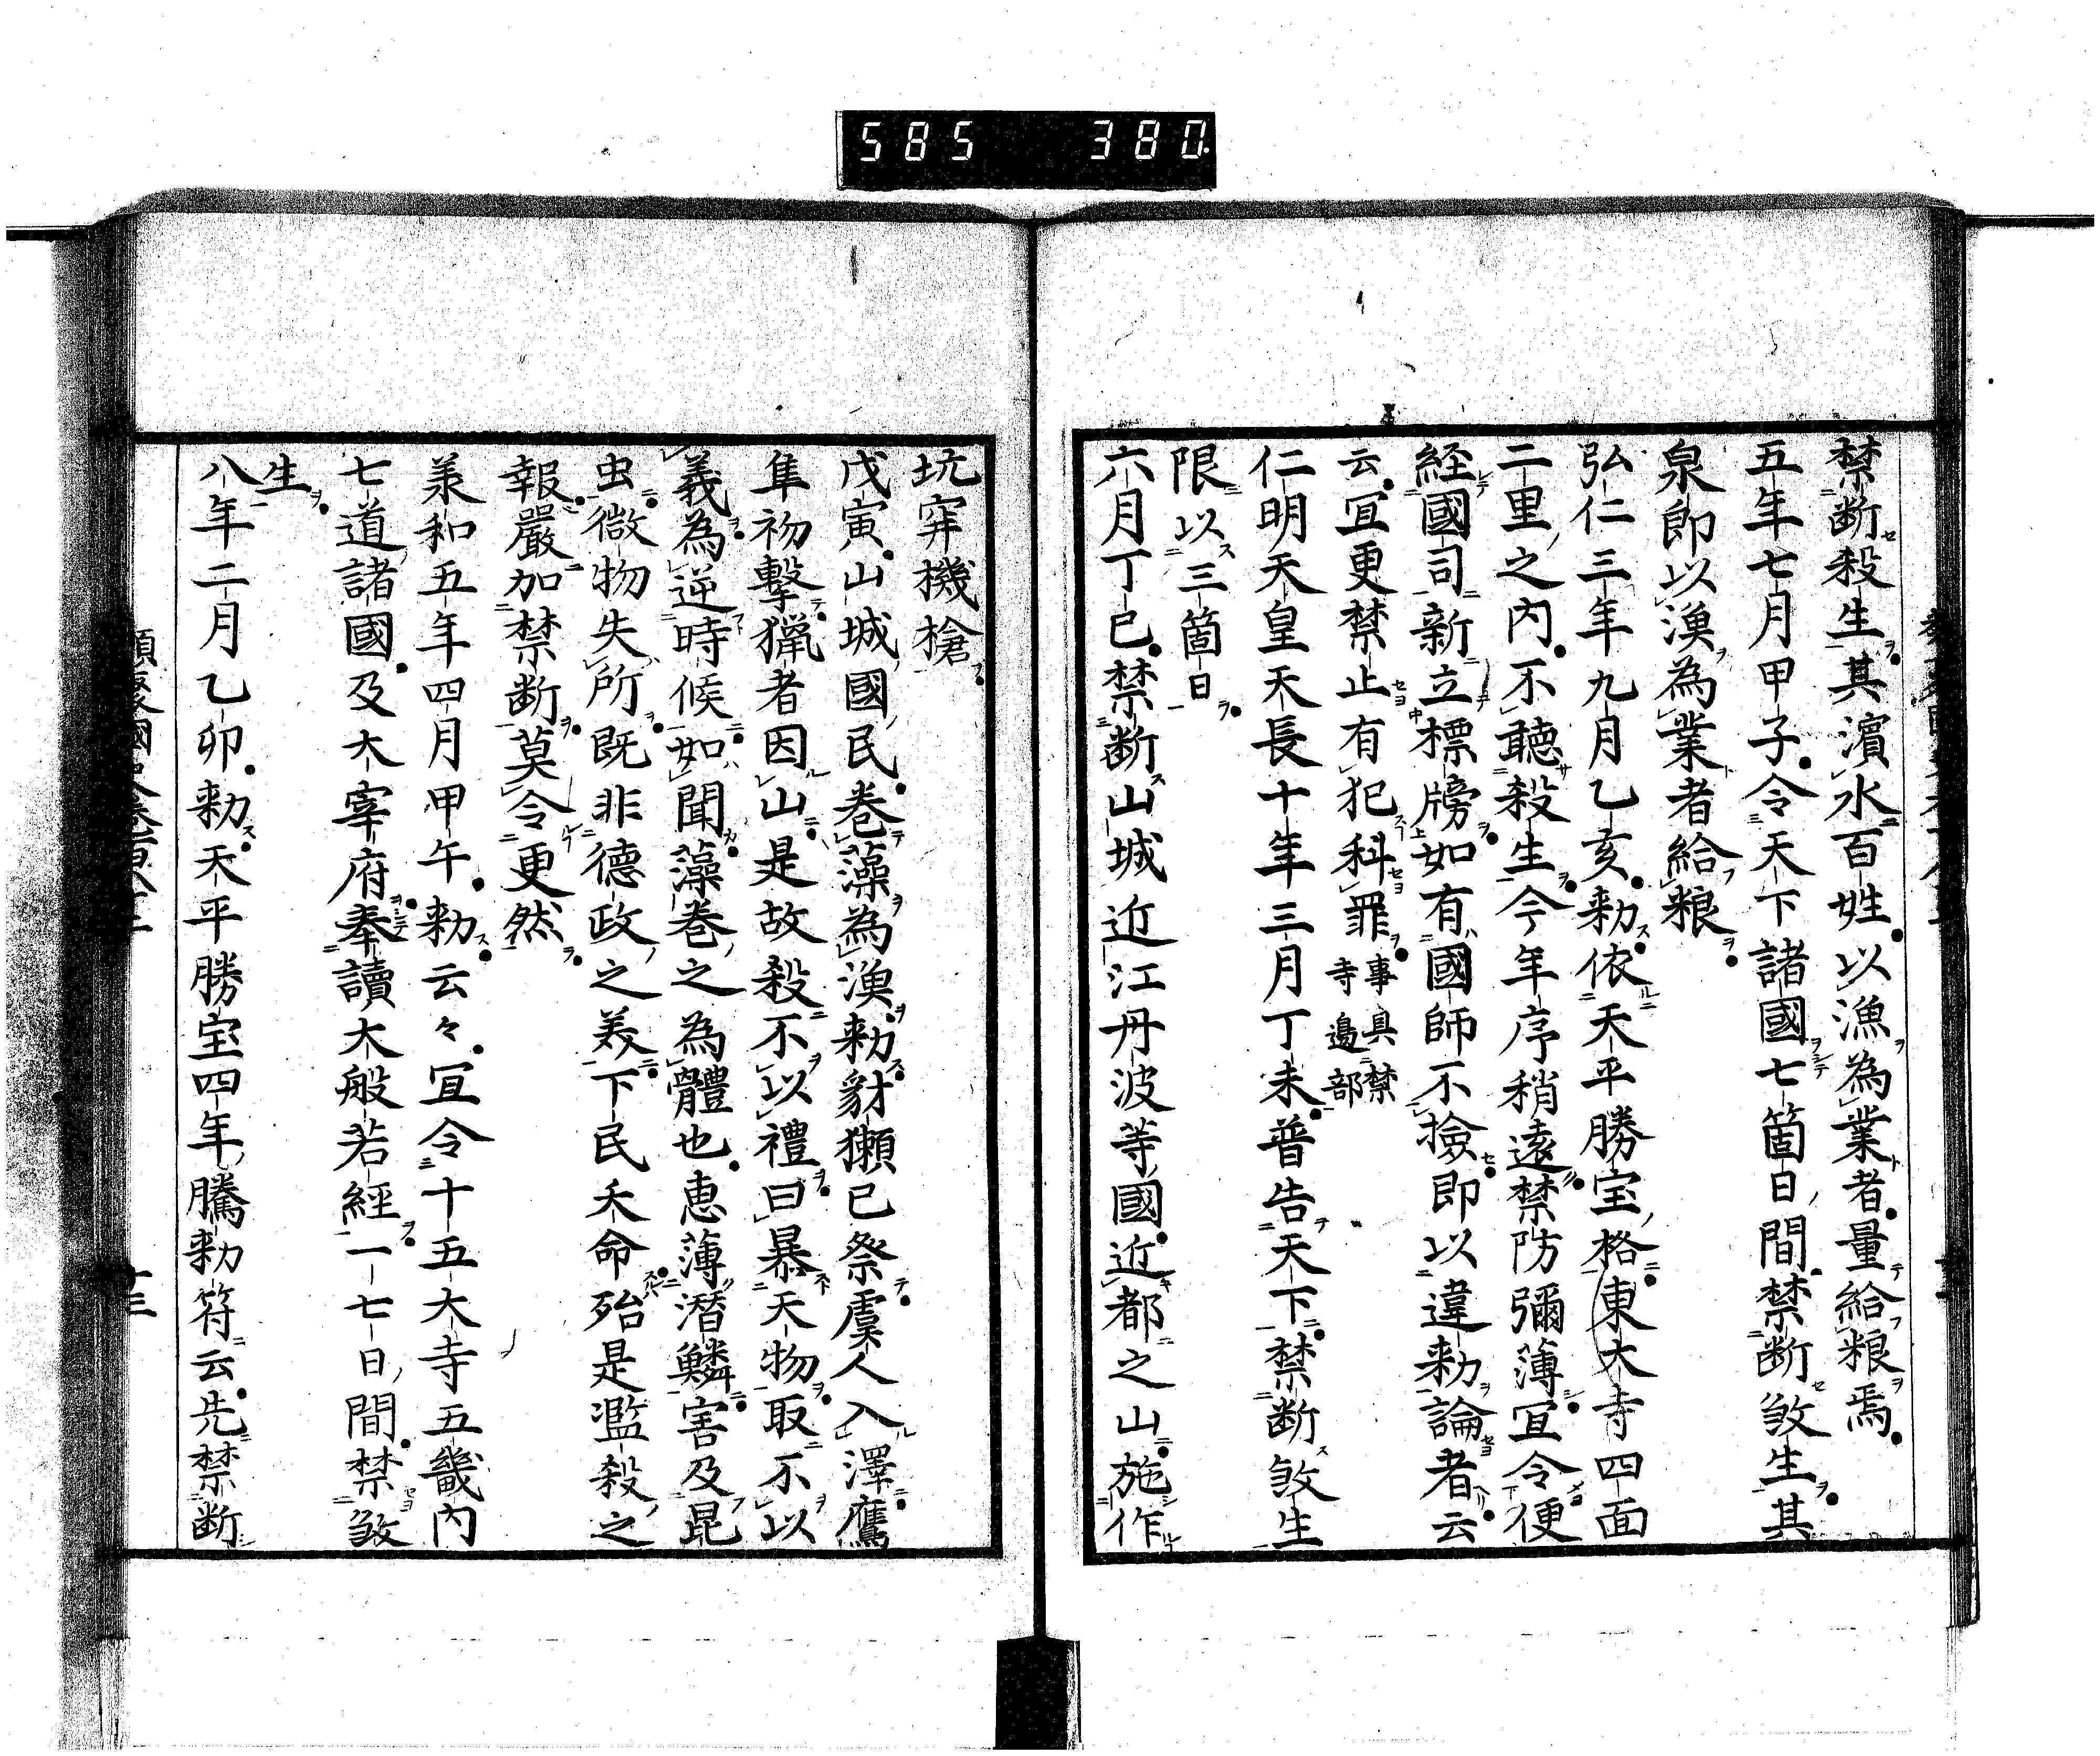 585 380
禁断殺生其濵水百姓以漁為業者量給粮焉
五年七月甲子令天下諸國七箇日間禁断敓生其
泉即以漁為業者給粮
弘仁三年九月乙亥勅依天平勝宝格東大寺四面
二里之内不聴殺生今年序稍遠禁防彌薄宜令便
経國司新立標牓如有國師不撿即以違勅論者云
云宜更禁止有犯科罪事具禁寺邉部
仁明天皇天長十年三月丁未普告天下禁断敓生
限以三箇日
六月丁巳禁断山城近江丹波等國近都之山施作
坑穽機槍
戊寅山城國民巻藻為漁勅豺獺已祭虞人入澤鷹
隼初擊獵者因山是故殺不以禮曰暴天物取不以
義為逆時候如聞藻巻之為體也恵薄潜鱗害及昆
虫微物失所既非德政之美下民夭命殆是濫殺之
報嚴加禁断莫令更然
羕和五年四月甲午勅云々宜令十五大寺五畿内
七道諸國及大宰府奉讀大般若經一七日間禁敓
生
八年二月乙卯勅天平勝宝四年騰勅符云先禁断
十三